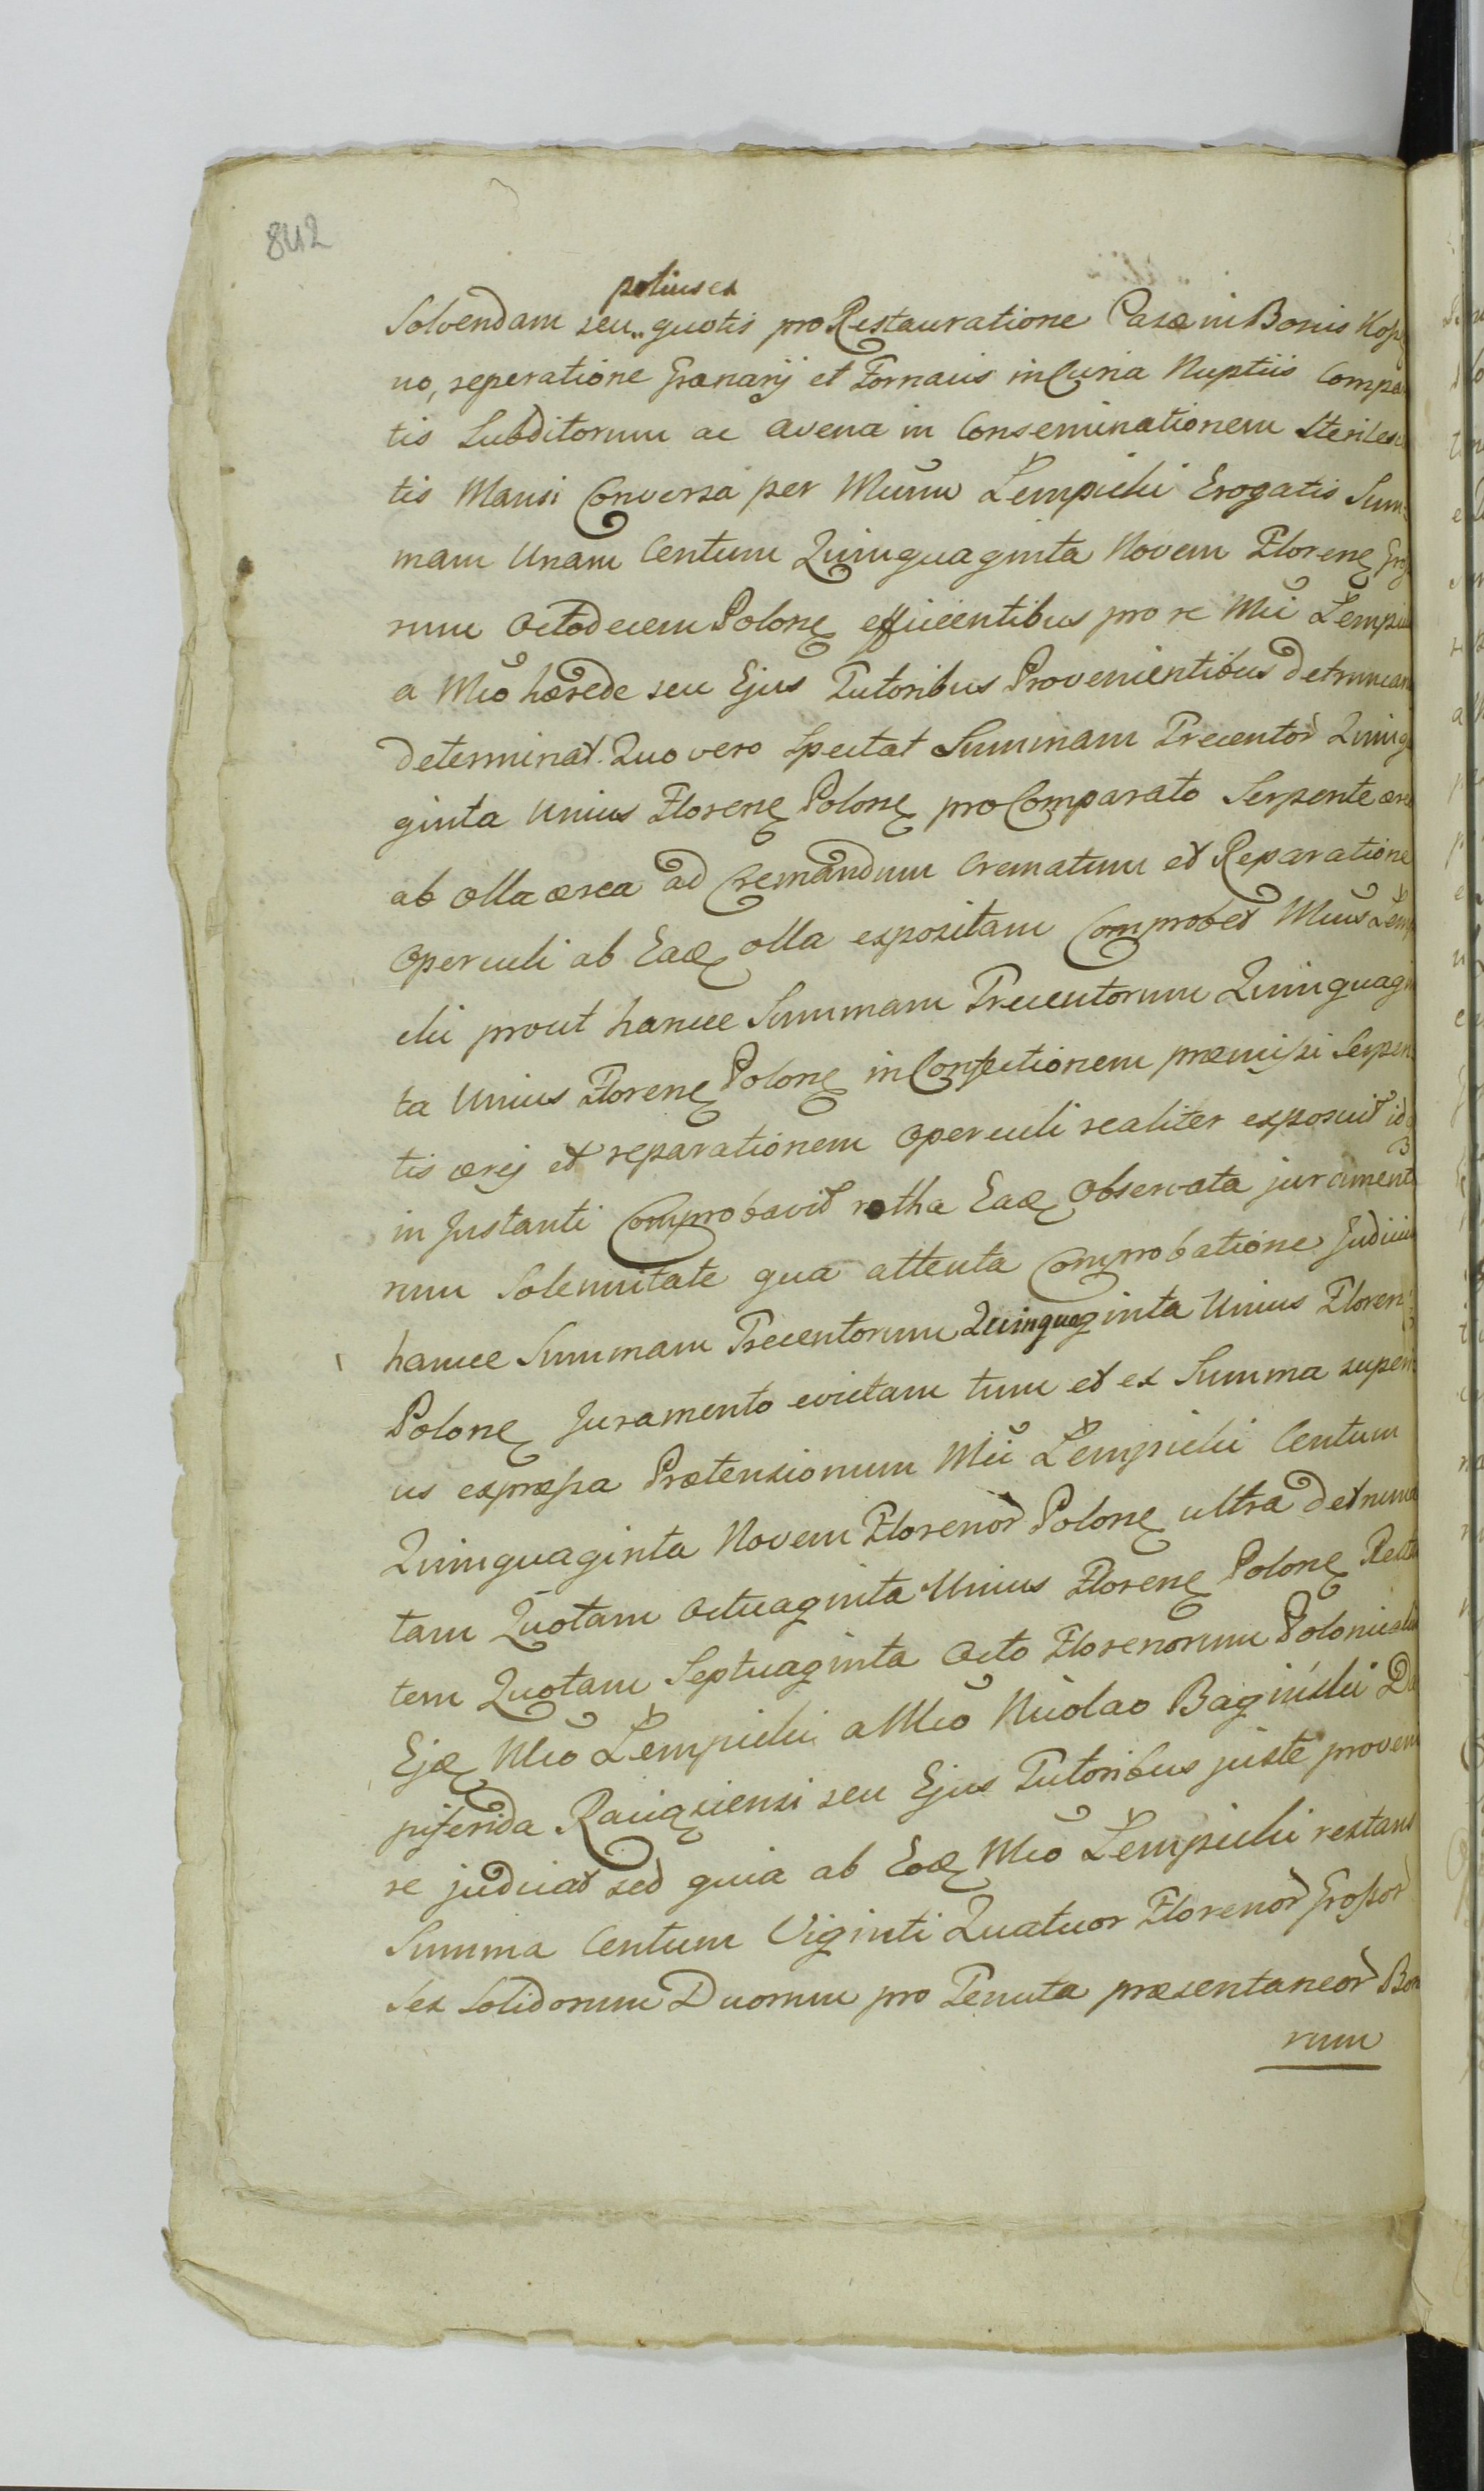 842
potius ex
Solvendam seu quotis pro Restauratione Casæ in Bonis Kop
no, reperatione Granarij et Fornacis in Curia Nuptiis Compa
tis Subditorum ac avena in Conseminationem Sterilesc
tis Mansi Conversa per Mcum Łempicki Erogatis Sum=
mam Unam Centum Quinquaginta Novem Floreng Gros
rum Octodecem Polong efficientibus pro re Mci Łempic
a Mco hærede seu Ejus Tutoribus Provenientibus detruncan
determinat. Quo vero Spectat Summam Trecentor Quinqua
ginta Unius Floreng Polong pro Comparato Serpente ære
ab olla ærea ad Cremandum Crematum et Reparatione
Operculi ab Eadg olla expositam Comprobet Mcus Łemp
cki prout hancce Summam Trecentorum Quinquagin
ta Unius Floreng Polong in Confectionem præmissi Serpen
tis ærij et reparationem Operculi realiter exposuit id
in Instanti Comprobavit rotha Eadg Observata jurament
rum Solemnitate qua attenta Comprobatione Judiciu
hancce Summam Trecentorum Quinquaginta Unius Floreng
Polong Juramento evictam tum et ex Summa superi
us expressa Prætensionum Mci Łempicki Centum
Quinquaginta Novem Florenor Polong ultra detrunca
tam Quotam Octuaginta Unius Floreng Polong Resta
tem Quotam Septuaginta Octo Florenorum Polonicalium
Ejdg Mco Łempicki a Mco Nicolao Bagiński Da
piferida Raciązgiensi seu Ejus Tutoribus juste proveni
re judicat sed quia ab Eodg Mco Łempicki restans
Summa Centum Viginti Quatuor Florenor Grossor
Sex Solidorum Duorum pro Tenuta præsentaneor Bon
rum